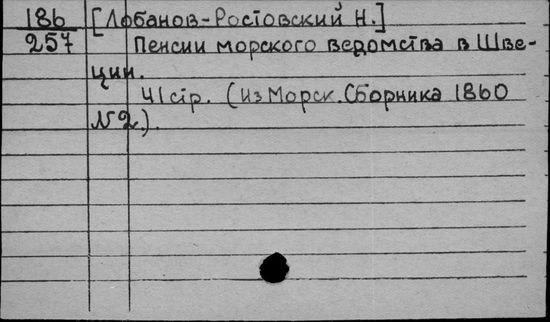 186 [Лобанов-Ростовский Н.]
257 Пенсии морского ведомства в Шве-
ции.
41 стр. (из Морск. Сборника 1860
№2.).